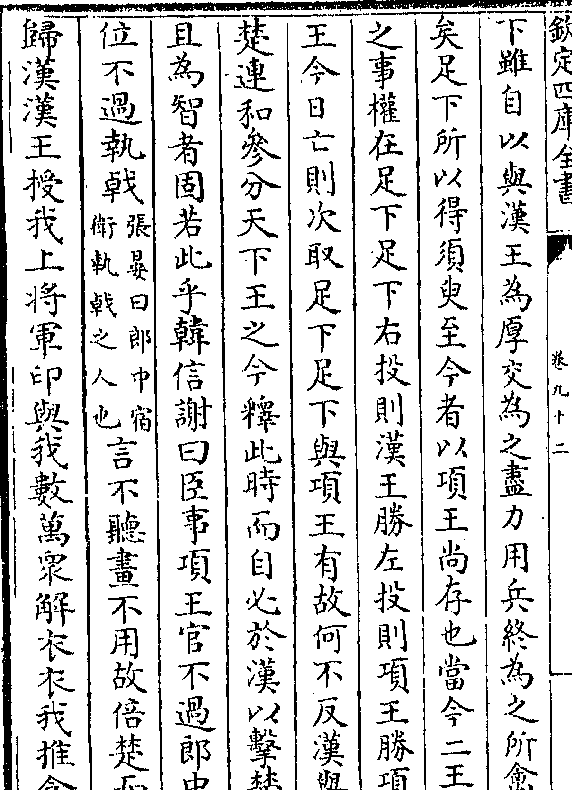 欽定四庫全書
卷九十二
下雖自以與漢王為厚交為之盡力用兵終為之所禽
矣足下所以得須臾至今者以項王尚存也當今二王
之事權在足下足下右投則漢王勝左投則項王勝項
王今日亡則次取足下足下與項王有故何不反漢與
楚連和參分天下王之今釋此時而自必於漢以擊楚
且為智者固若此乎韓信謝曰臣事項王官不過郎中
位不過執戟張晏曰郎中宿衛執戟之人也言不聽畫不用故倍楚而
歸漢漢王授我上將軍印與我數萬衆解衣衣我推食